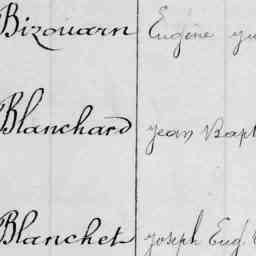 Bizouarn Eugène
Blanchard Jean Bapt
Blanchet Joseph Eug.